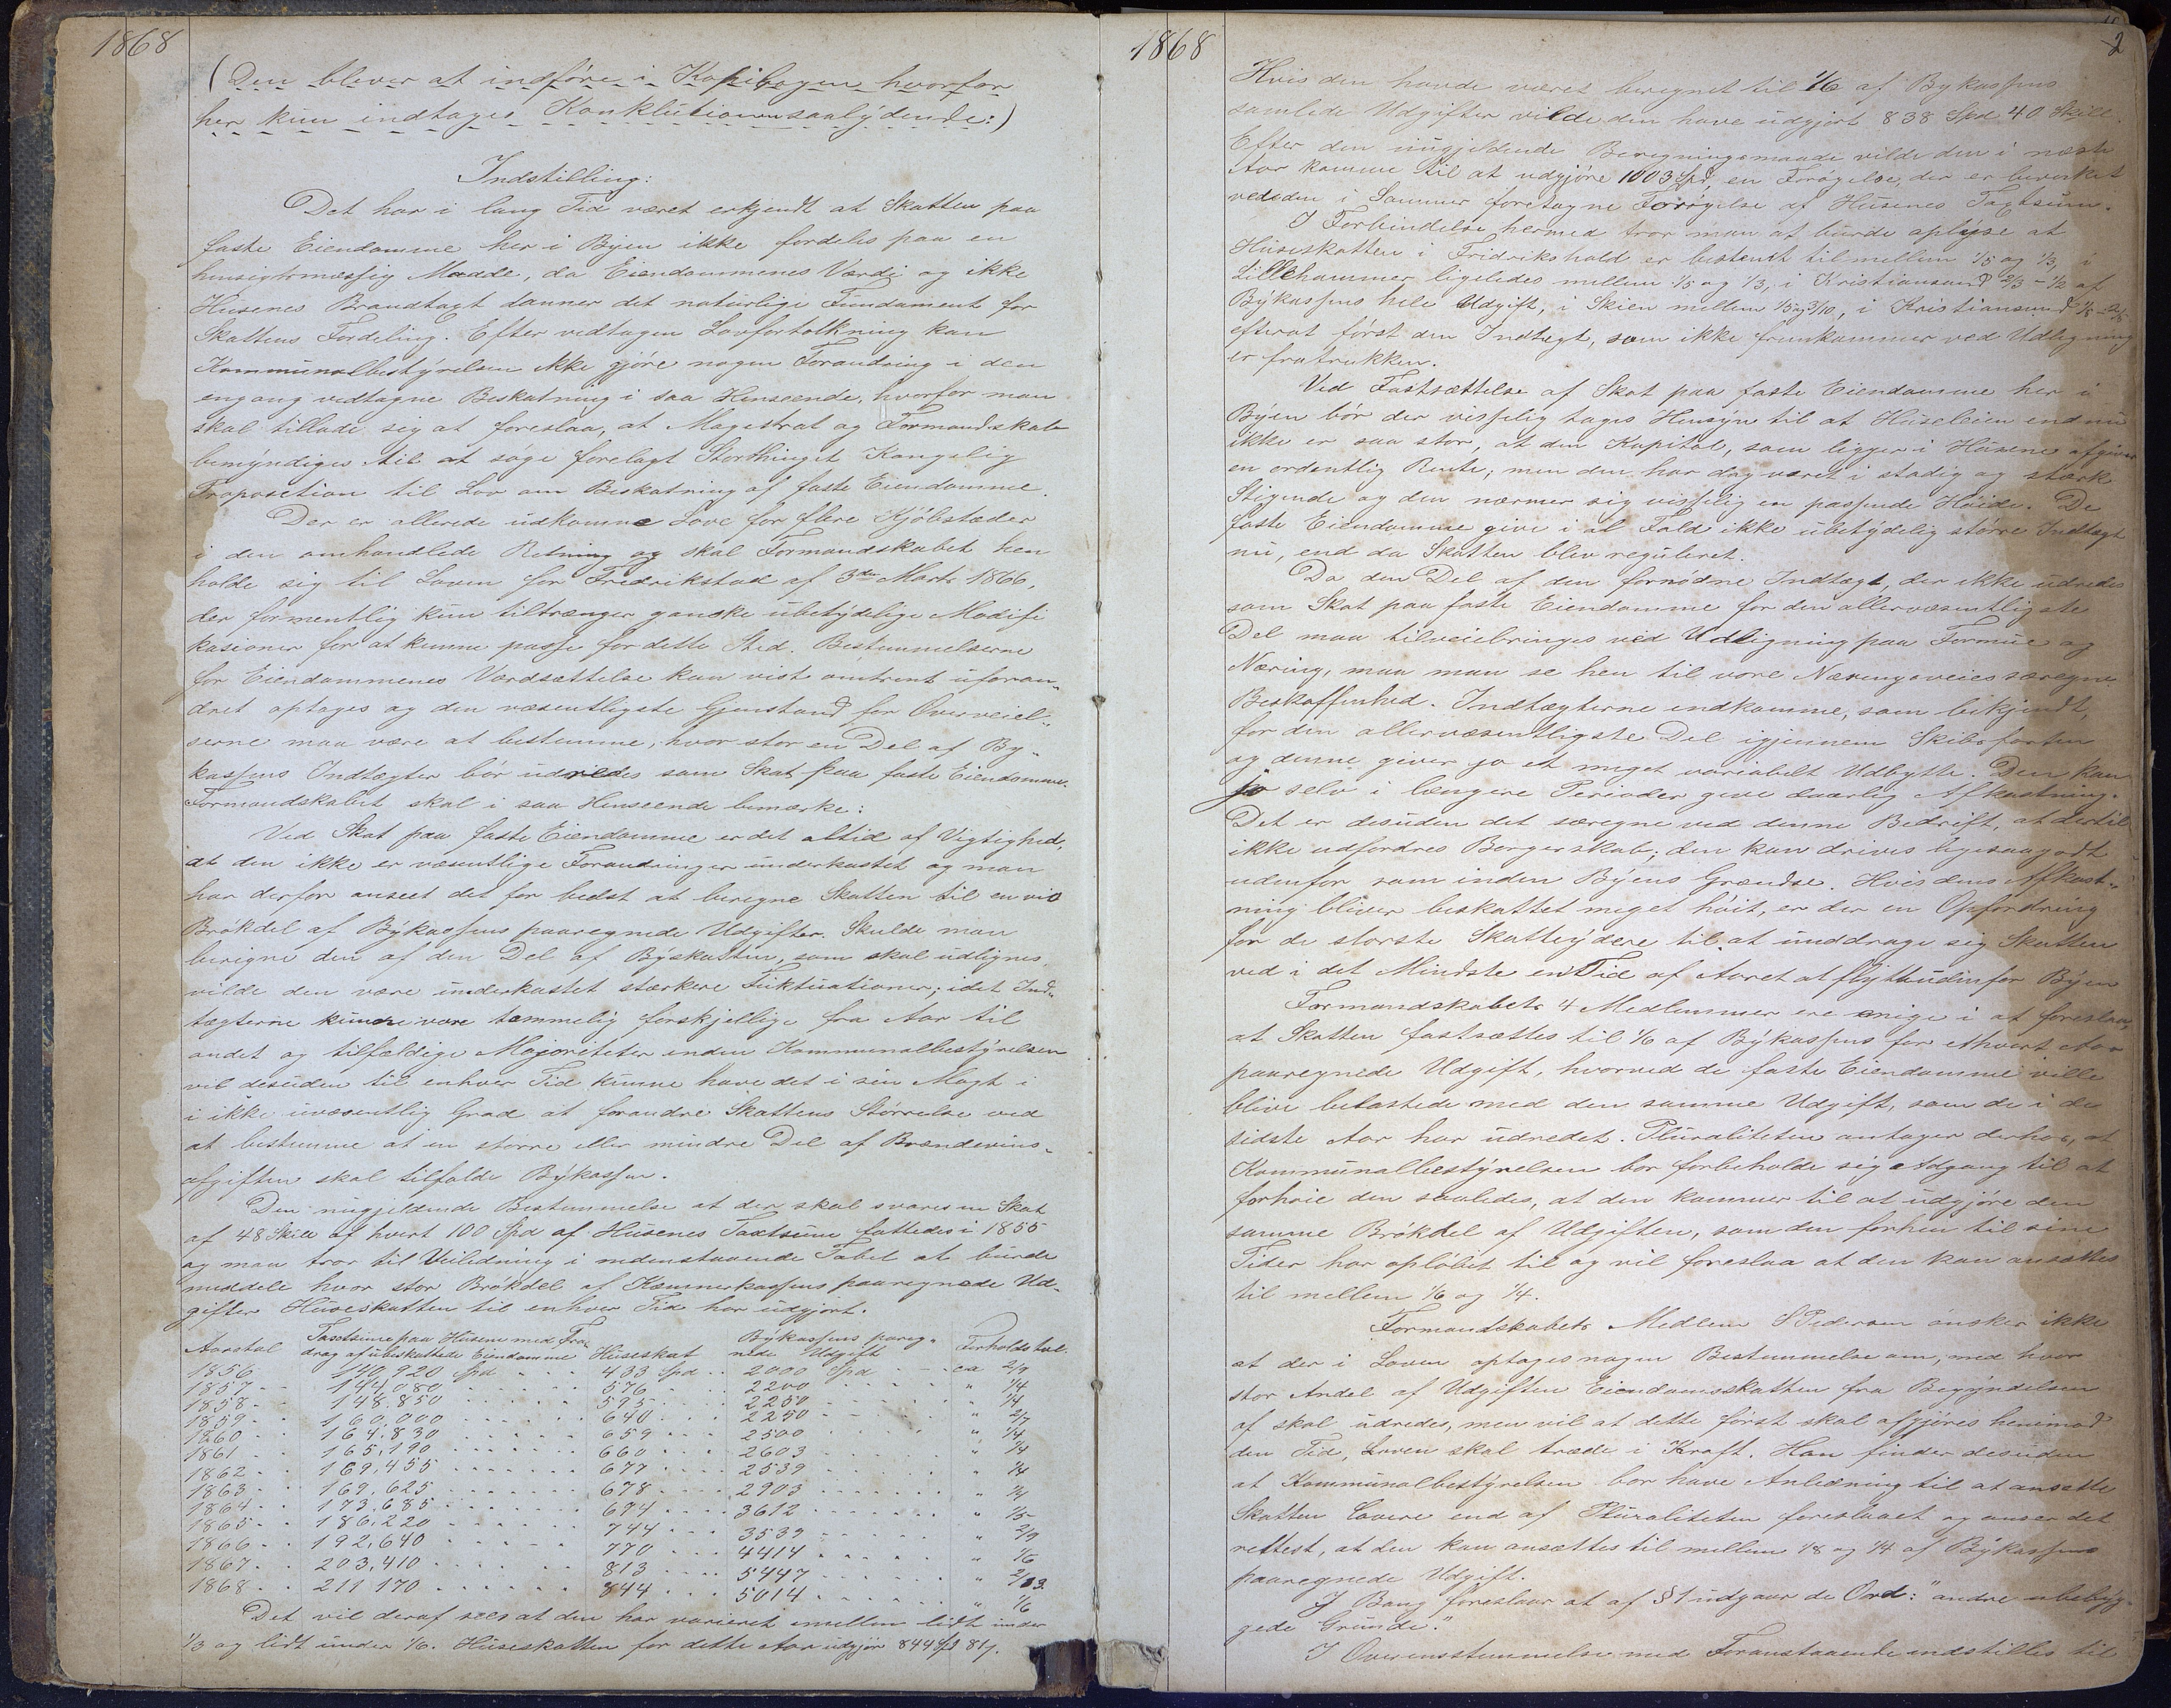 1868
(Den bliver at indføre i Kopibogen hvorfor
her kun indtages Konklutionen saalydende:)
Indstilling:
Det har i lang Tid været erkjendt at Skatten paa
faste Eiendomme her i Byen ikke fordeles paa en
hensigtsmæssig Maade, da Eiendommenes Værdi og ikke
Husenes Brandtaxt danner det naturlige Fundament for
Skattens Fordeling. Efter vedtagen Lovfortolkning kan
Kommunalbestyrelsen ikke gjøre nogen Forandring i den
engang vedtagne Beskatning i saa Henseende, hvorfor man
skal tillade sig at foreslaa, at Magistrat og Formandskab
bemyndiges til at søge forelagt Storthinget Kongelig
Proposition til Lov om Beskatning af faste Eiendomme.
Der er allerede udkomne Love for flere Kjøbstæder
i den omhandlede Retning og skal Formandskabet hen
holde sig til Loven for Fredrikstad af 3die Marts 1866,
der formentlig kun tiltrænger ganske ubetydelige Modifi
kasioner for at kunne passe for dette Sted. Bestemmelserne
for Eiendommenes Værdsættelse kan vist omtrent uforan-
dret optages og den væsentligste Gjenstand for Overveiel-
serne maa være at bestemme, hvor stor en Del af By-
kassens Indtægter bør udredes som Skat paa faste Eiendomme.
Formandskabet skal i saa Henseende bemærke:
Ved Skat paa faste Eiendomme er det altid af Vigtighed,
at den ikke er væsentlige Forandringer underkastet og man
har derfor anseet det for bedst at beregne Skatten til en vis
Brøkdel af Bykassens paaregnede Udgifter. Skulde man
beregne den af den Del af Byskatten, som skal udlignes,
vilde den være underkastet stærkere Fluktuationer; idet Ind-
tægterne kunne være temmelig forskjellige fra Aar til
andet og tilfældige Majoriteter inden Kommunalbestyrelsen
vil desuden til enhver Tid kunne have det i sin Magt i
i ikke uvæsentlig Grad at forandre Skattens Størrelse ved
at bestemme at en større eller mindre Del af Brændevins-
afgiften skal tilfalde Bykassen.
Den nugjeldende Bestemmelse at der skal svares en Skat
af 48 Skill af hvert 100 Spd af Husenes Taxtsum fattedes i 1855
og man tror til Veiledning i nedenstaaende Tabel at burde
meddele hvor stor Brøkdel af Kæmnerkassens paaregnede Ud-
gifter Huseskatten til enhver Tid har udgjort.
Aarstal Taxtsum paa Husene med Fra- Huseskat Bykassens pareg- Forholdstal.
drag af ubeskattede Eiendomme nede Udgift
1856 140,920 Spd 433 Spd 2000 Spd ca 2/9
1857 144,080 576 2200 " 1/4
1858 148,850 595 2250 " 1/4
1859 160,000 640 2250 " 2/7
1860 164,830 659 2500 " 1/4
1861 165,190 660 2603 " 1/4
1862 169,455 677 2539 " 1/4
1863 169,625 678 2903 "
1864 173,685 694 3612 " 1/5
1865 186,220 744 3539 " 2/9
1866 192,640 770 4414 " 1/6
1867 203,410 813 5447 " 2/13
1868 211 170 844 5014 " 1/6
Det vil deraf sees at den har varieret mellem lidt under
1/3 og lidt under 1/6. Huseskatten for dette Aar udgjør 844 Spd 81
1868
2
Hvis den havde været beregnet til 1/6 af Bykassens
samlede Udgifter vilde den have udgjort 838 Spd 40 Skill.
Efter den nugjeldende Beregningsmaade vilde den i næste
Aar komme til at udgjøre 1003 Spd, en Forøgelse, der er bevirket
ved den i Sommer foretagne Forøgelse af Husenes Taxtsum.
I Forbindelse hermed tror man at burde oplyse at
Huseskatten i Fridrikshald er bestemt til mellem 1/5 og 1/3, i
Lillehammer ligeledes mellem 1/5 og 1/3, i Kristiansand 2/3 - 1/2 af
Bykassens hele Udgift, i Skien mellem 1/5 og 3/10, i Kristiansund 1/5 - 2/5
efterat først den Indtægt, som ikke fremkommer ved Udligning
er fratrukken.
Ved Fastsættelse af Skat paa faste Eiendomme her i
Byen bør der visselig tages Hensyn til at Huseleien endnu
ikke er saa stor, at den Kapital, som ligger i Husene afgiver
en ordentlig Rente; men den har dog været i stadig og stærk
Stigende og den nærmer sig visselig en passende Høide. De
faste Eiendomme give i al Fald ikke ubetydelig større Indtægt
nu, end da Skatten blev reguleret.
Da den Del af den fornødne Indtægt, der ikke udredes
som Skat paa faste Eiendomme for den allervæsentligste
Del maa tilveiebringes ved Udligning paa Formue og
Næring, maa man se hen til vore Næringsveies særegne
Beskaffenhed. Indtægterne indkomme, som bekjendt,
for den allervæsentligste Del igjennem Skibsfarten
og denne giver jo et meget variabelt Udbytte. Den kan
jo selv i længere Perioder give daarlig Afkastning.
Det er desuden det særegne ved denne Bedrift, at dertil
ikke udfordres Borgerskab; den kan drives ligesaagodt
udenfor som inden Byens Grændse. Hvis dens Afkast-
ning bliver beskattet meget høit, er der en Opfordring
for de største Skatteydere til at unddrage sig Skatten
ved i det Mindste en Tid af Aaret at flytte udenfor Byen
Formandskabets 4 Medlemmer ere enige i at foreslaa
at Skatten fastsættes til 1/6 af Bykassens for ethvert Aar
paaregnede Udgift, hvorved de faste Eiendomme ville
blive belastede med den samme Udgift, som de i de
sidste Aar har udredet. Pluraliteten antager derhos, at
Kommunalbestyrelsen bør forbeholde sig Adgang til at
forhøie den saaledes, at den kommer til at udgjøre den
samme Brøkdel af Udgiften, som den forhen til sine
Tider har opløbet til og vil foreslaa at den kan ansættes
til mellem 1/6 og 1/4.
Formandskabets Medlem S Pedersen ønsker ikke
at der i Loven optages nogen Bestemmelse om, med hvor
stor Andel af Udgiften Eiendomsskatten fra Begyndelsen
af skal udredes, men vil at dette først skal afgjøres henimod
den Tid, Loven skal træde i Kraft. Han finder desuden
at Kommunalbestyrelsen bør have Anledning til at ansætte
Skatten lavere end af Pluraliteten foreslaaet og anser det
rettest, at den kan ansættes til mellem 1/8 og 1/4 af Bykassens
paaregnede Udgift.
J Bang foreslaar at af § 1 udgaar de Ord: "andre ubebyg-
gede Grunde".
I Overensstemmelse med Foranstaaende indstilles til